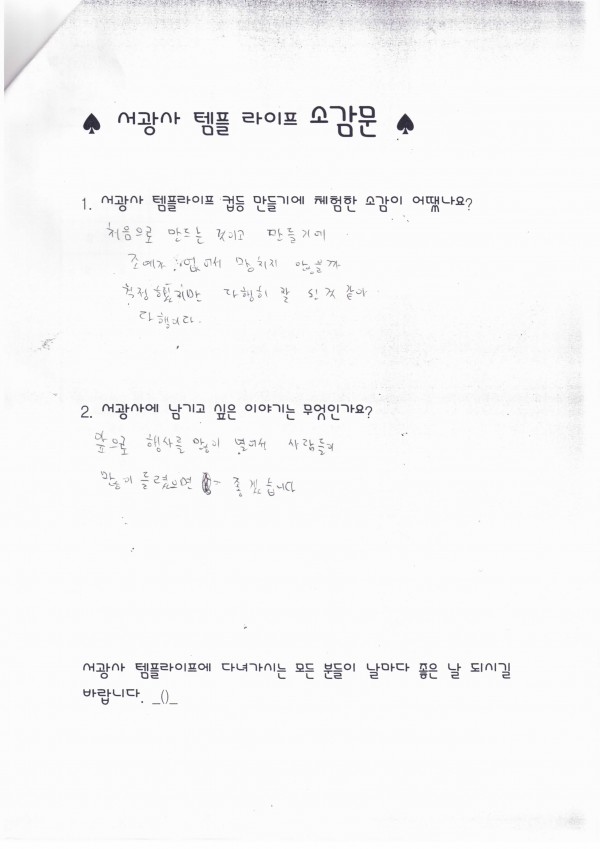 ♠ 서광사 템플 라이프 소감문 ♠
1. 서광사 템플라이프 컵등 만들기에 체험한 소감이 어땠나요?
처음으로 만드는 것이고 만들기에
조예가 없어서 망치지 않을까
걱정했지만 다행히 잘 된 것 같아
다행이다.
2. 서광사에 남기고 싶은 이야기는 무엇인가요?
앞으로 행사를 많이 열어서 사람들이
많이 들렸으면 좋겠습니다
서광사 템플라이프에 다녀가시는 모든 분들이 날마다 좋은 날 되시길
바랍니다. _()_